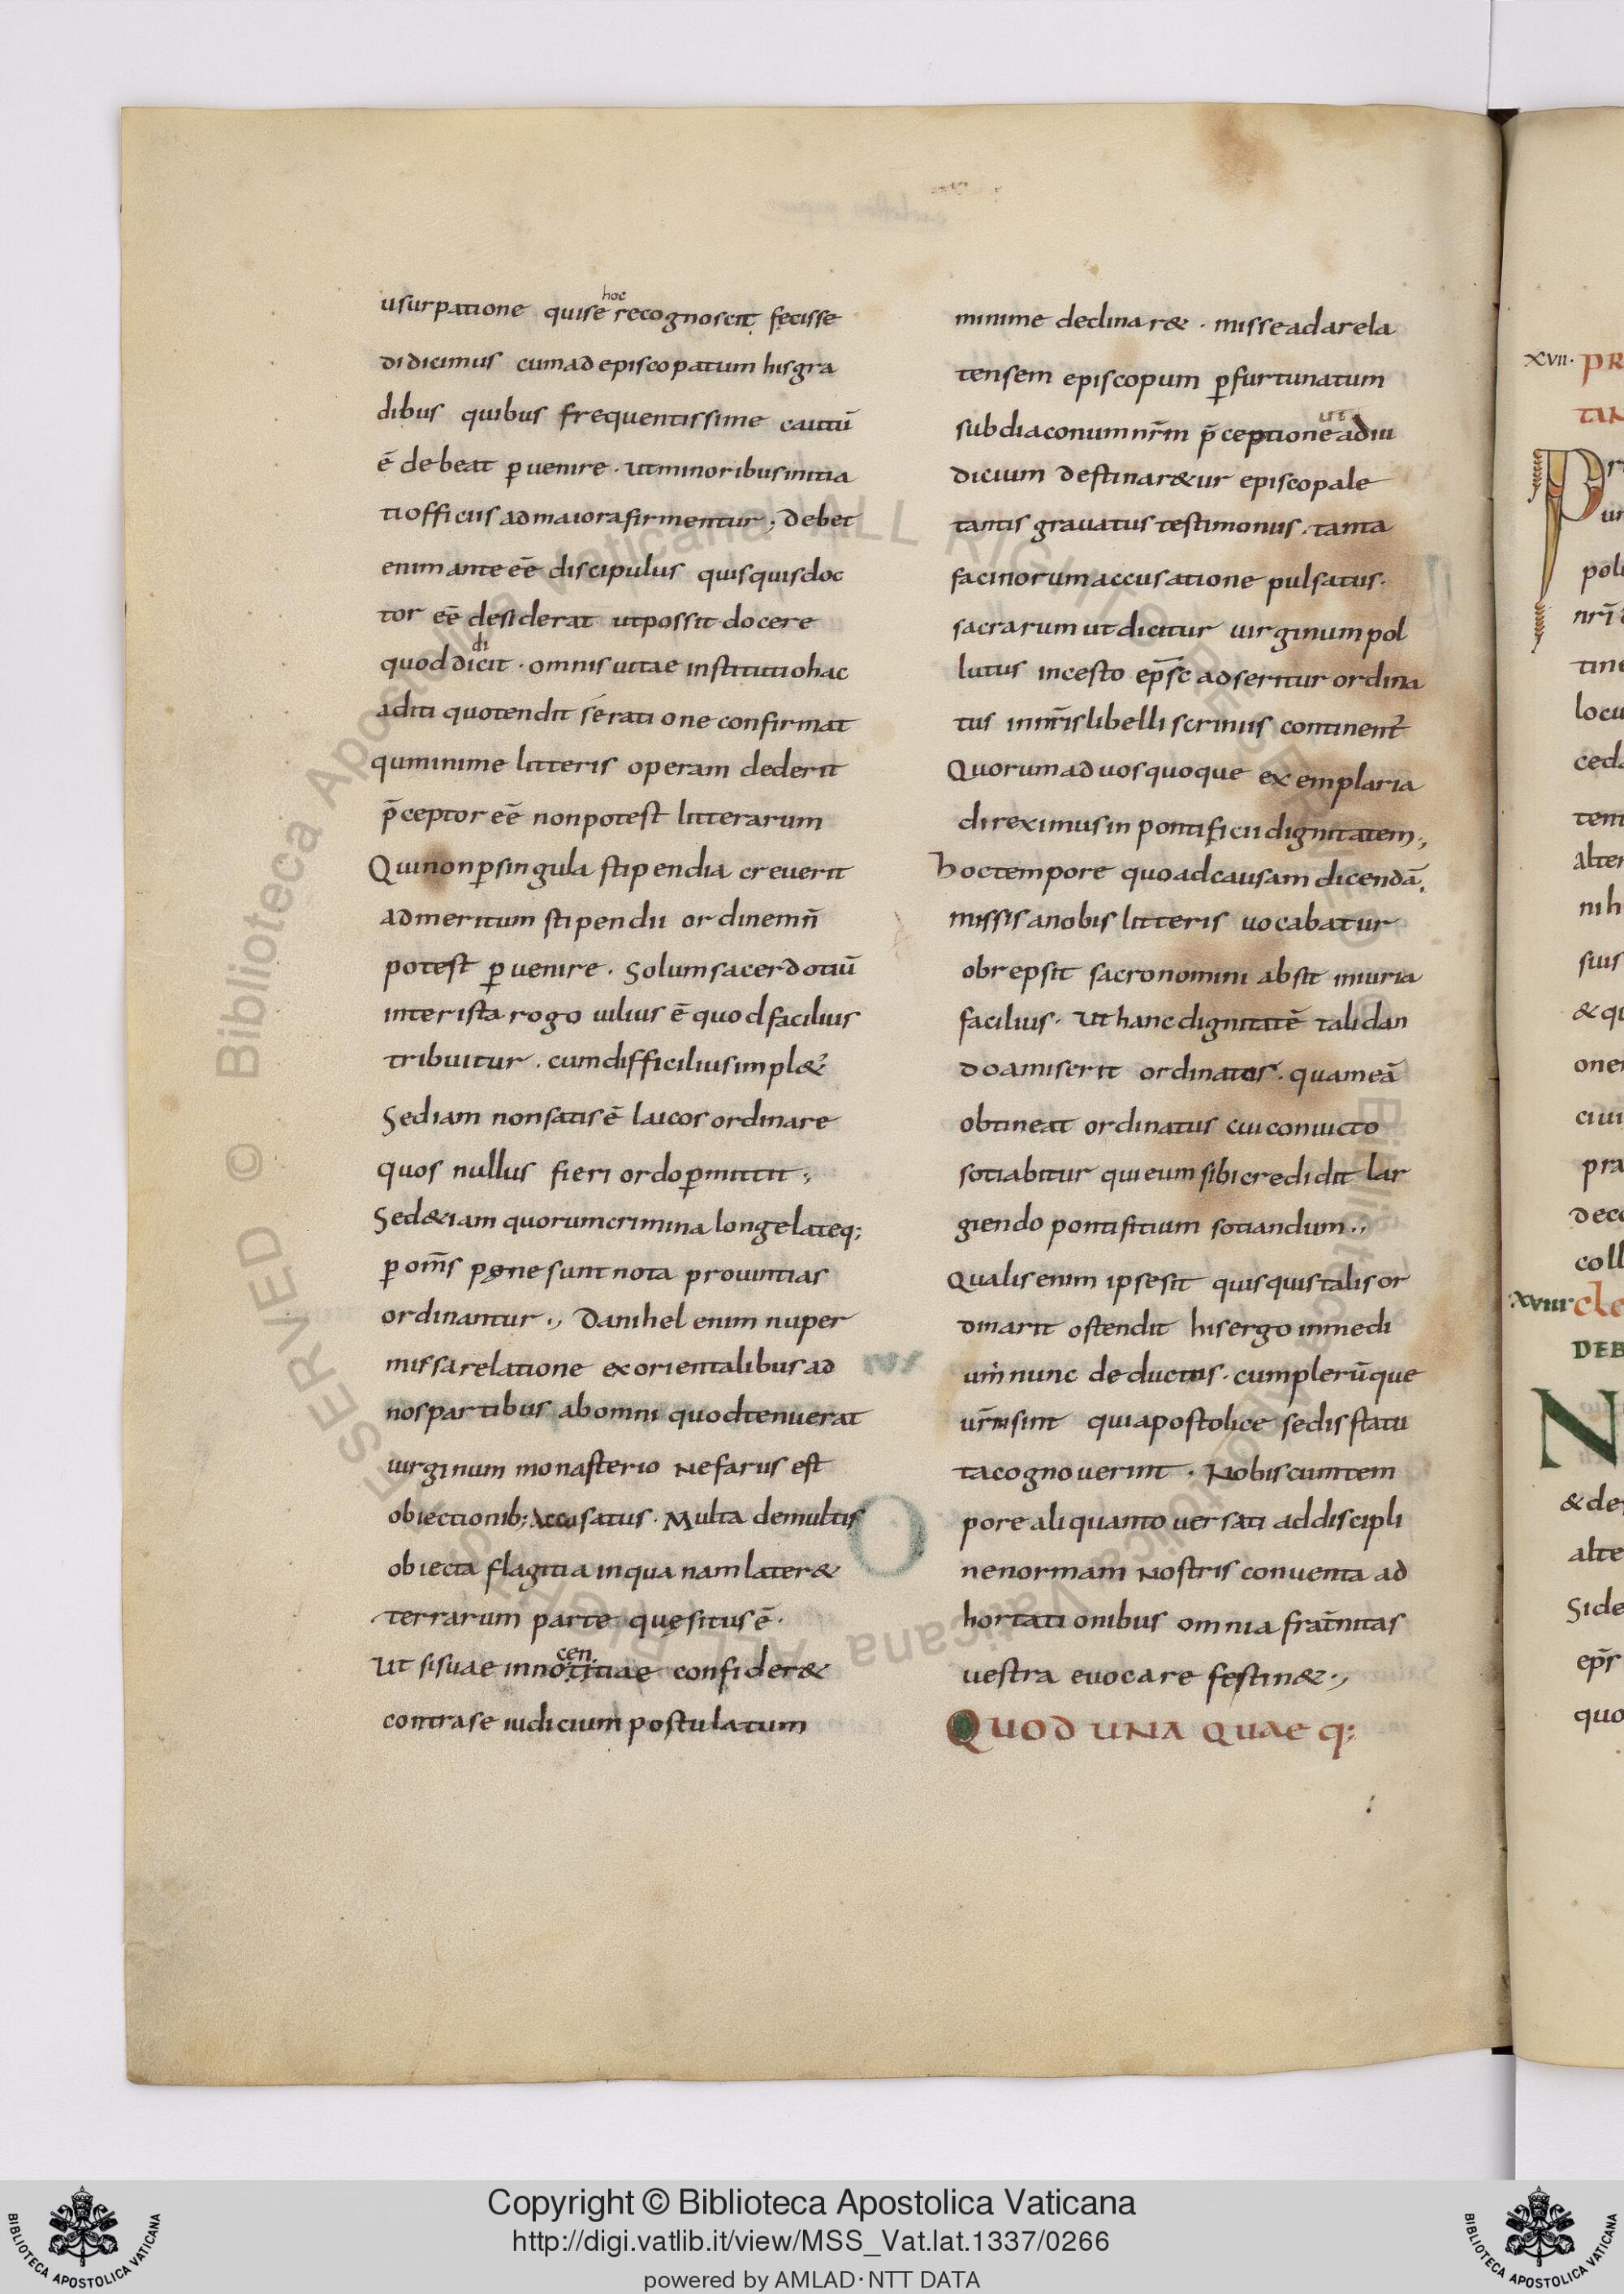 usurpatione quise hoc recognoscit fecisse
didicimus cumad episcopatum hisgra
dibus quibus frequentissime cautū
ē debeat ꝑuenire · utminoribusinitia
tiofficiis admaiorafirmentur ; debet
enimante eē discipulus quisquisdoc
tor eē desiderat utpossit docere
quoddicit di · omnisuitae institutiohac
aditi quotendit sératione confirmat
quminime litteris operam dederit
p̄ceptor eē nonpotest litterarum
Quinonꝑsingula stipendia creuerit
admeritum stipendii ordinemn̄
potest ꝑuenire · Solumsacerdotiū
interista rogo uilius ē quodfacilius
tribuitur · cumdifficiliusimpl&ur
Sediam nonsatisē laicos ordinare
quos nullus fieri ordoꝑmittit ;
Sed&iam quorumcrimina longelateq;
ꝑ om̄s pęne sunt nota prouintias
ordinantur ., Danihel enim nuper
missarelatione exorientalibusad
nospartibus abomni quodtenuerat
uirginum monasterio Nefariis est
obiectionib; Accusatus · Multa demultis
obiecta flagitia inqua namlater&
terrarum parte quęsitusē ·
Ut sisuae innotitiae cen confider&
contrase iudicium postulatum
minime declinar& · misseadarela
tensem episcopum ꝑfurtunatum
subdiaconumnr̄m p̄ceptione ut adiu
dicium destinar&ur episcopale
tantis grauatus testimoniis · tanta
facinorumaccusatione pulsatus ·
sacrarumutdicitur uirginumpol
lutus incesto ep̄sc adseritur ordina
tus innr̄islibelli scriniis continent᷑
Quorumaduosquoque exemplaria
direximusin pontificii dignitatem ;
hoctempore quoadcausam dicendā,
missisanobis litteris uocabatur
obrepsit sacronomini absit iniuria
facilius · Ut hanc dignitatē talidan
doamiserit ordinatus · quameā
obtineat ordinatus cuiconuicto
sotiabitur quieumsibicredidit lar
giendo pontifitium sotiandum .,
Qualisenim ipsesit quisquistalisor
dinarit ostendit hisergo inmedi
um̄nunc deductus · cumplerūque
ur̄msint quiapostolice sedis statu
tacognouerint · Nobiscumtem
pore aliquanto uersati addiscipli
nenormam Nostris conuenta ad
hortationibus omnia frat̄nitas
uestra euocare festin& .,
QUOD UNA QUAEQ;
XVII· PR
TAN
Pr
ur
polu
nr̄i
tine
locu
ceda
tem
alter
nih
suis
&qu
one
ciui
pra
deco
coll
XVIII cle
DEB
N
&de
alte
Side
ep̄s
quo
Copyright © Biblioteca Apostolica Vaticana
http://digi.vatlib.it/view/MSS_Vat.lat.1337/0266
powered by AMLAD·NTT DATA
BIBLIOTECA APOSTOLICA VATICANA
BIBLIOTECA APOSTOLICA VATICANA